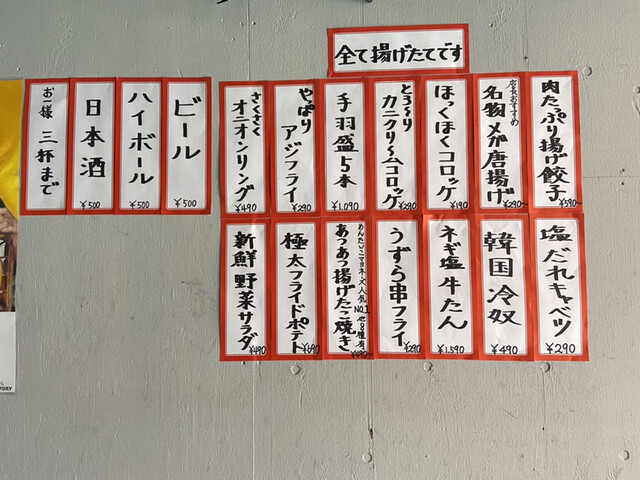 全て揚げたてです
肉たっぷり揚げ餃子
¥590~
店長おすすめ
名物メガ唐揚げ
¥290~
ほっくほくコロッケ
¥190
とろ~り
カニクリ~ムコロッケ
¥290
手羽盛5本
¥1,090
やっぱり
アジフライ
¥290
さくさく
オニオンリング
¥490
塩だれキャベツ
¥290
韓国冷奴
¥490
ネギ塩牛たん
¥1,590
うずら串フライ
¥290
めんたいこマヨネーズ人気NO.1 他8種有
あつあつ揚げたこ焼き
¥490~
極太フライドポテト
¥690
新鮮野菜サラダ
¥490
ビール
¥500
ハイボール
¥500
日本酒
¥500
お一様 三杯まで